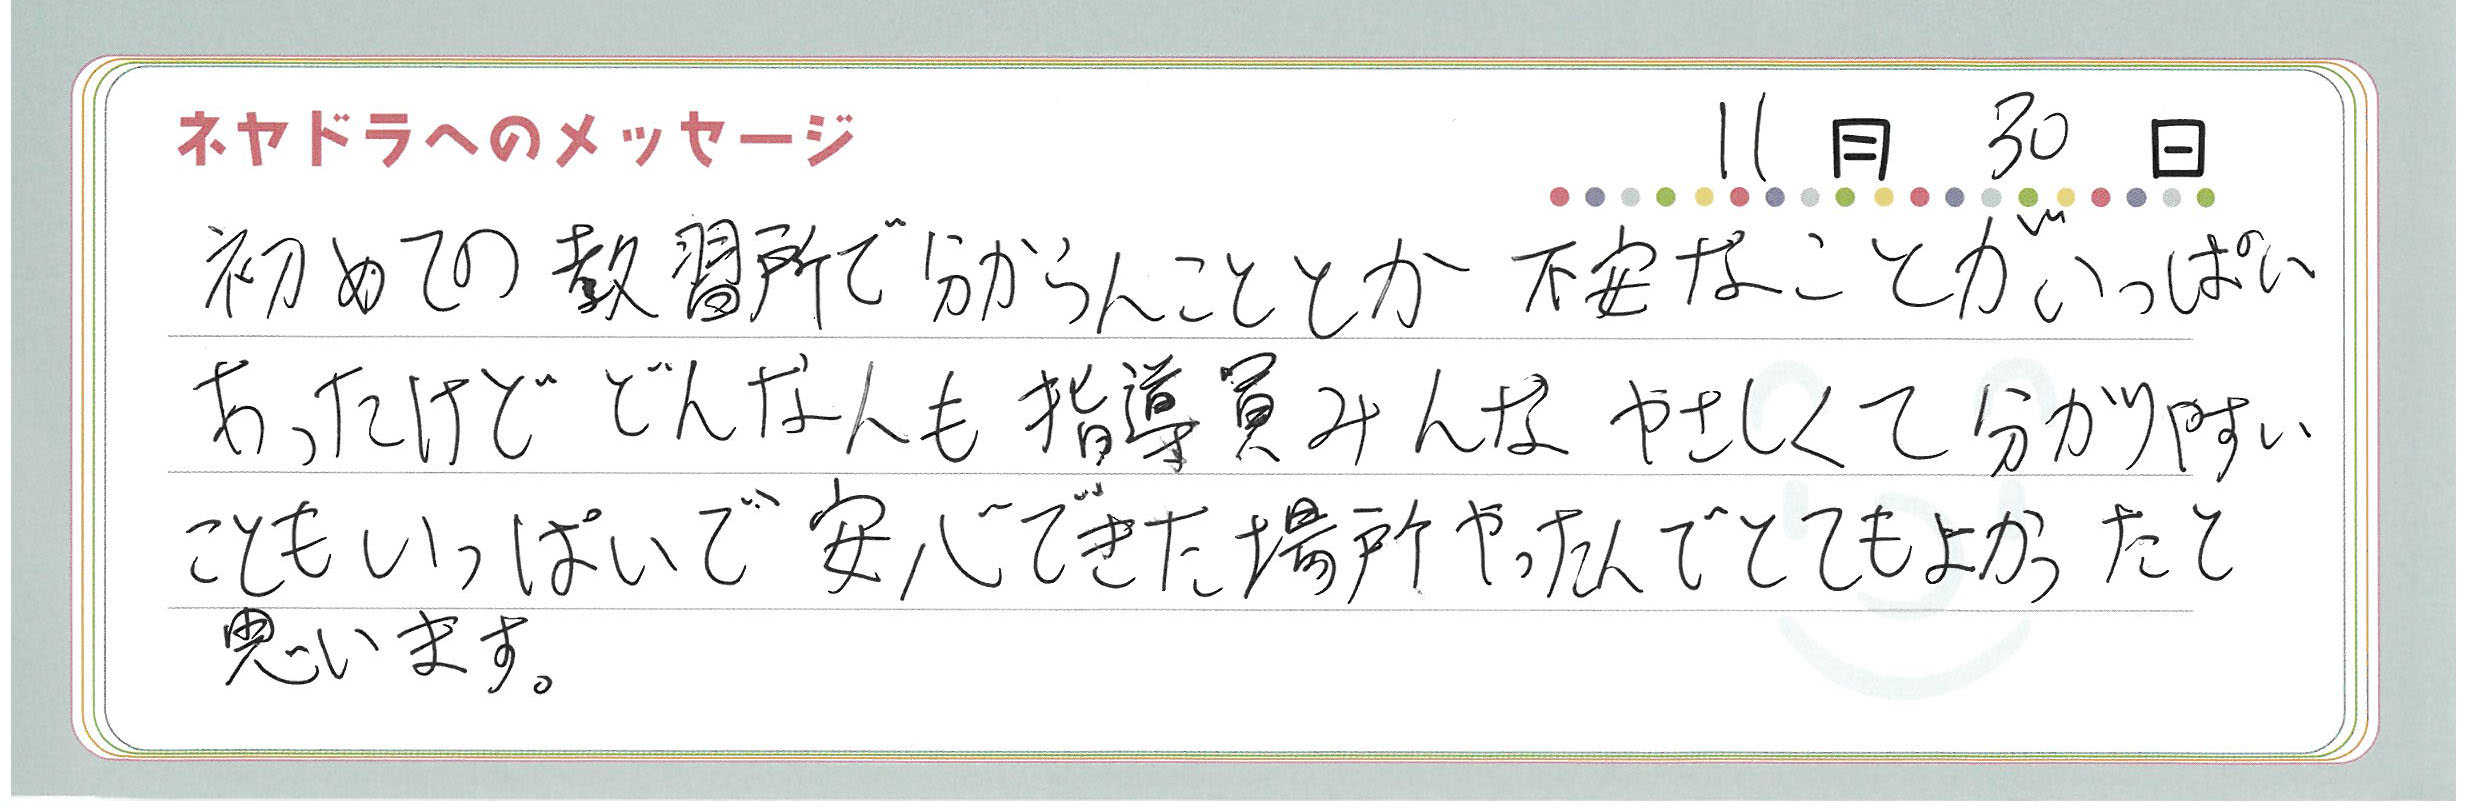 ネヤドラへのメッセージ
11月30日
初めての教習所で分からんこととか不安なことがいっぱい
あったけどどんなんも指導員みんなやさしくて分かりやすい
こともいっぱいで安心できた場所やったんでとてもよかったと
思います。